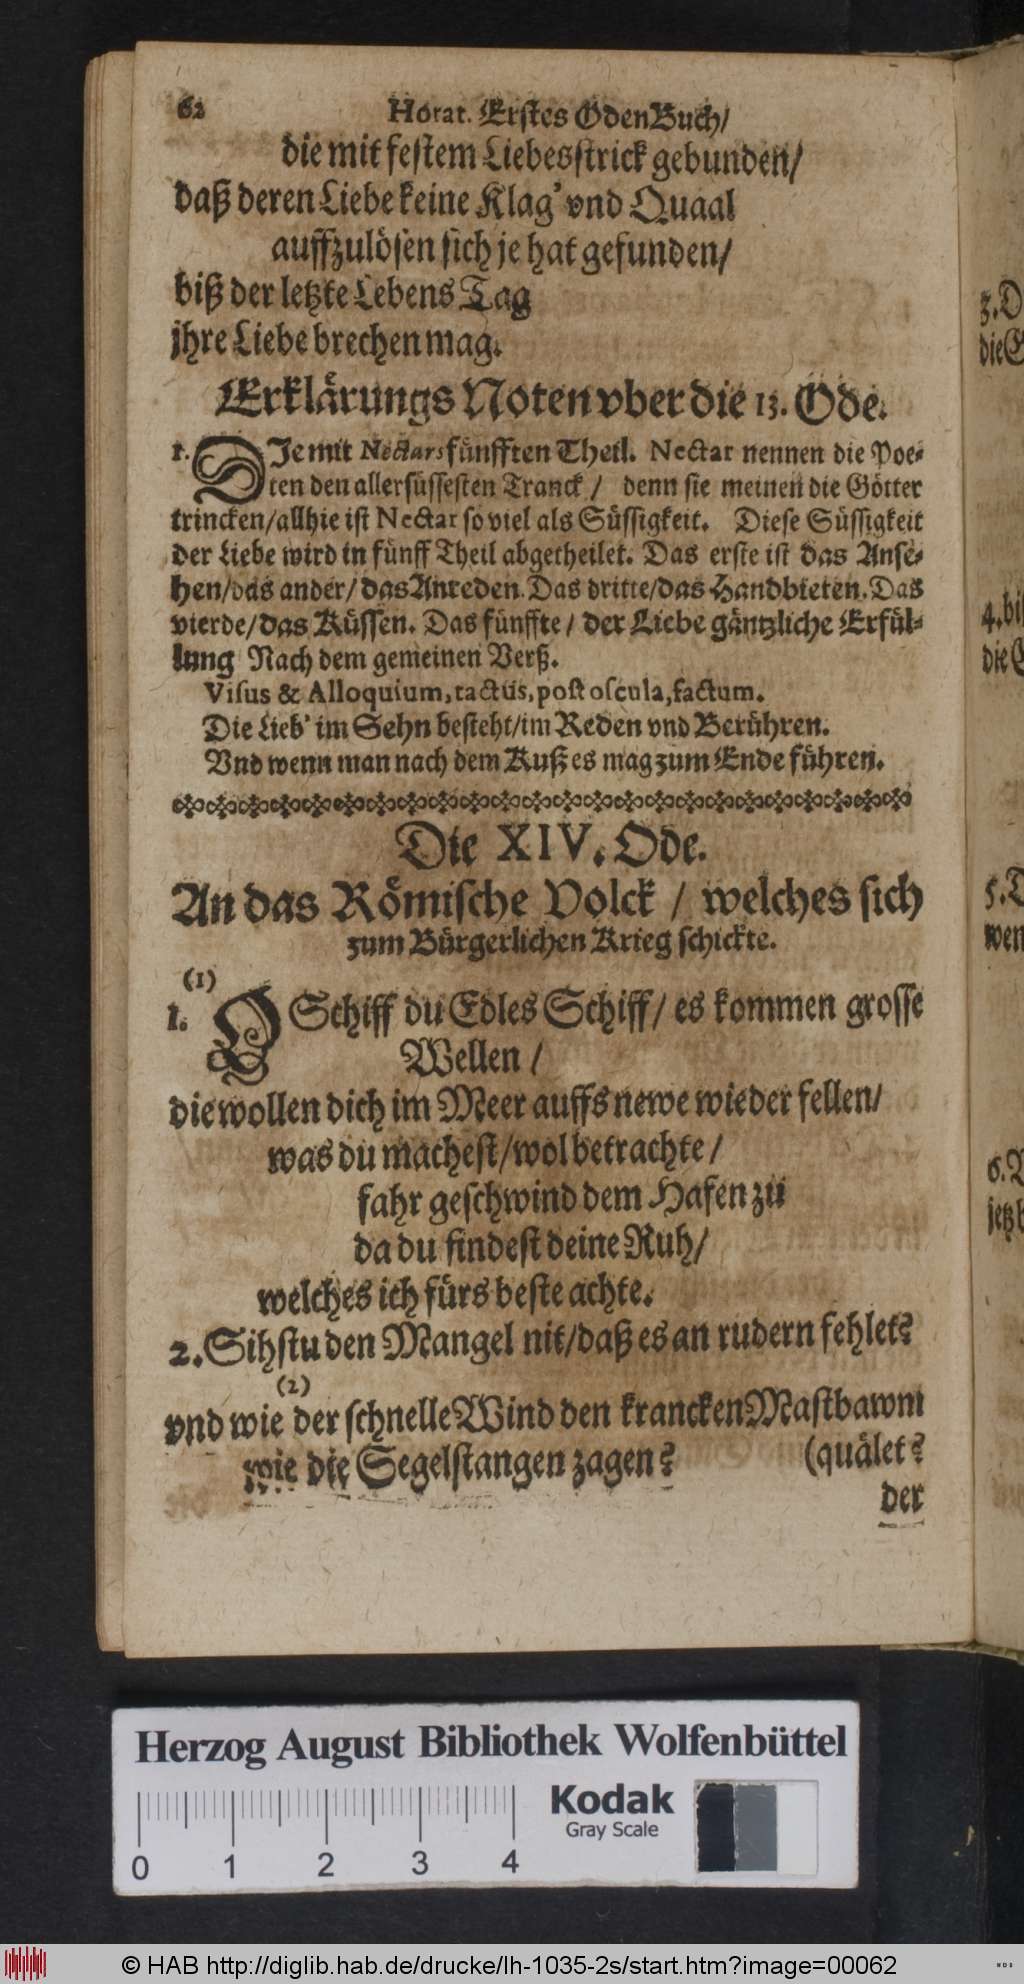 62 Horat. Erstes OdenBuch/
die mit festem Liebesstrick gebunden/
daß deren Liebe keine Klag' vnd Quaal
auffzulösen sich je hat gefunden/
biß der letzte Lebens Tag
jhre Liebe brechen mag.
Erklärungs Noten vber die 13. Ode.
1. DJe mit Nectars fünfften Theil. Nectar nennen die Poe-
ten den allersüssesten Tranck / denn sie meinen die Götter
trincken/allhie ist Nectar so viel als Süssigkeit. Diese Süssigkeit
der Liebe wird in fünff Theil abgetheilet. Das erste ist das Anse-
hen/das ander/das Anreden. Das dritte/das Handbieten. Das
vierde/das Küssen. Das fünffte/ der Liebe gäntzliche Erfül-
lung Nach dem gemeinen Verß.
Visus & Alloquium, tactus, post oscula, factum.
Die Lieb' im Sehn besteht/im Reden vnd Berühren.
Vnd wenn man nach dem Kuß es mag zum Ende führen.
Die XIV. Ode.
An das Römische Volck / welches sich
zum Bürgerlichen Krieg schickte.
(1)
1. O Schiff du Edles Schiff/ es kommen grosse
Wellen /
die wollen dich im Meer auffs newe wieder fellen/
was du machest/wol betrachte/
fahr geschwind dem Hafen zü
da du findest deine Ruh/
welches ich fürs beste achte.
2. Sihstu den Mangel nit/daß es an rudern fehlet?
(2)
vnd wie der schnelle Wind den krancken Mastbawm
wie die Segelstangen zagen? (quälet?
der
3. D
die E
4. bi
die
5. D
wen
6.
jetz
Herzog August Bibliothek Wolfenbüttel
Kodak
Gray Scale
0 1 2 3 4
© HAB http://diglib.hab.de/drucke/lh-1035-2s/start.htm?image=00062